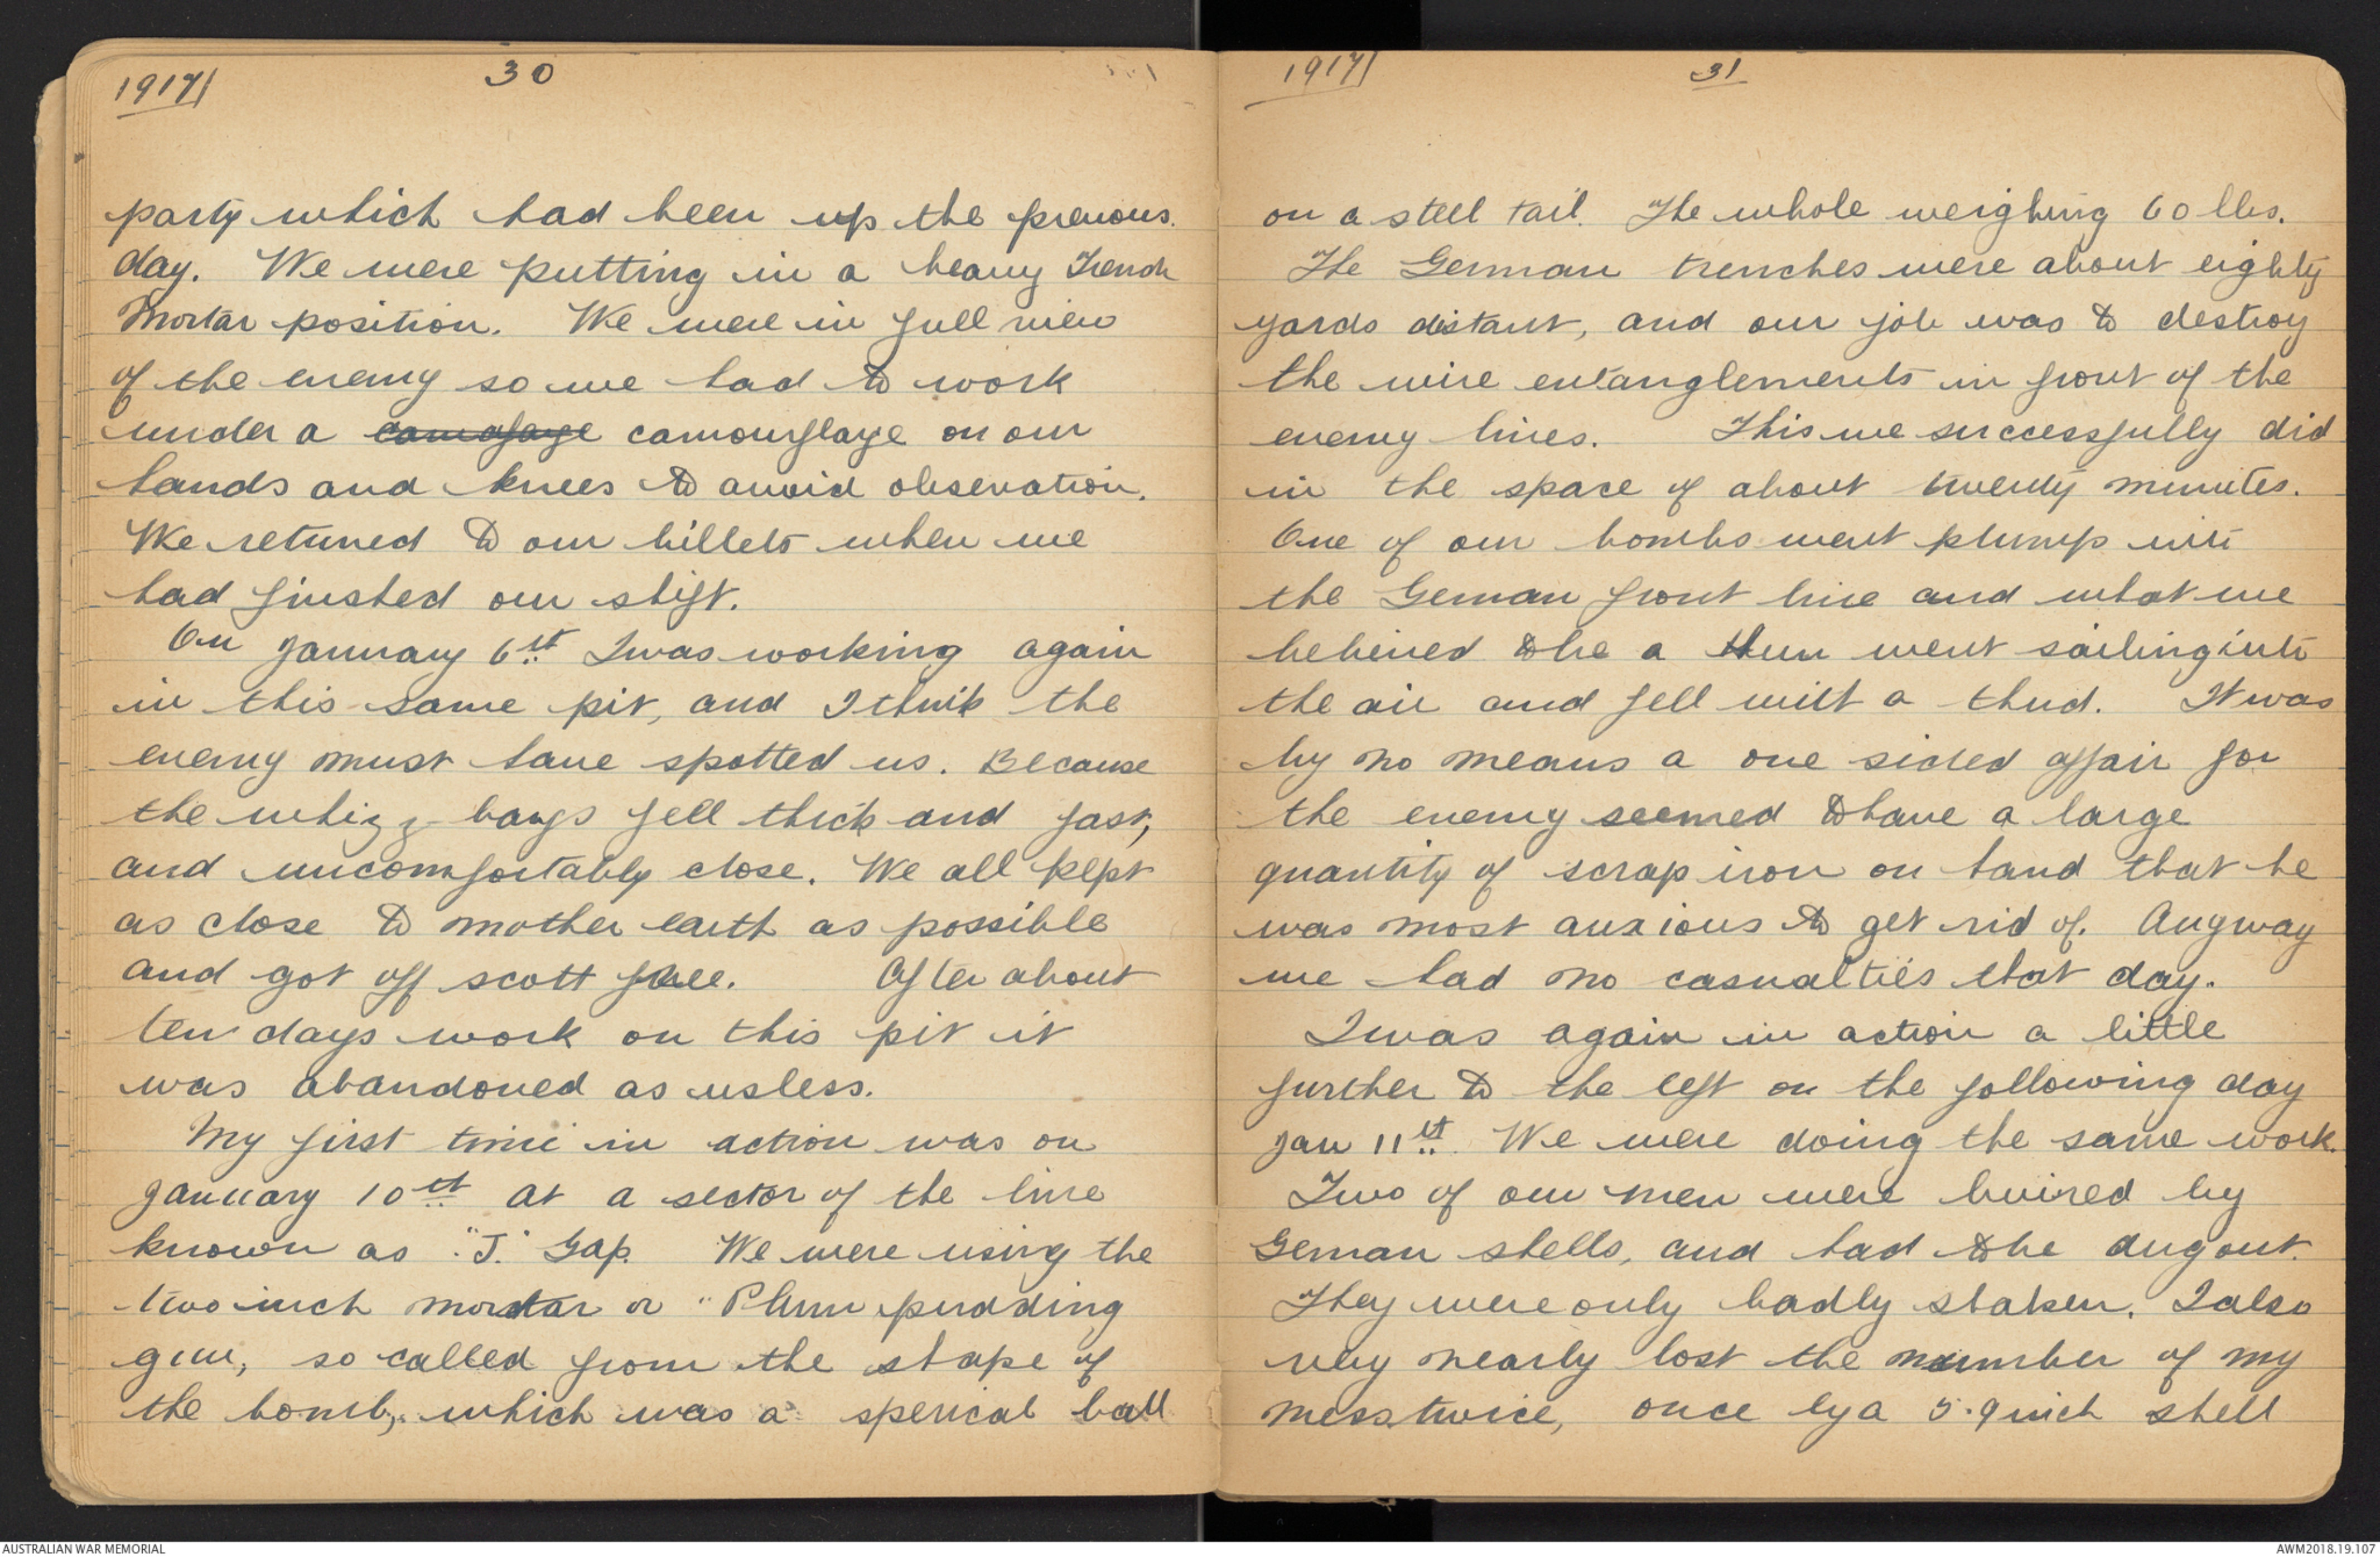 1917
30
party which had been up the previous
day. We were putting in a heavy Trench
Mortar position. We were in full view
of the enemy so we had to work
under a camofage camourflage on our
hands and knees to avoid observation.
We returned to our billets when we
had finshed our shift.
On January 6st I was working again
in this same pit, and I think the
enemy must have spotted us. Because
the whizz bangs fell thick and fast,
and uncomfortably close. We all kept
as close to mother earth as possible
and got off scott free. After about
ten days work on this pit it
was abandoned as usless.
My first time in action was on
January 10th at a sector of the line
known as "J." Gap. We were using the
two inch mortar or "Plum pudding
gun, so called from the shape of
the bomb, which was a sperical ball
1917
31
on a steel tail. The whole weighing 60 lbs.
The German trenches were about eighty
yards distant, and our job was to destroy
the wire entanglements in front of the
enemy lines. This we successfully did
in the space of about twenty minutes.
One of our bombs went plump into
the German front line and what we
believed to be a Hun went sailing into
the air and fell with a thud. It was
by no means a one sided affair for
the enemy seemed to have a large
quantity of scrap iron on hand that he
was most anxious to get rid of. Anyway
we had no casualties that day.
I was again in action a little
further to the left on the following day
Jan 11th. We were doing the same work.
Two of our men were buired by
German shells, and had to be dug out.
They were only badly shaken. I also
very nearly lost the number of my
mess twice, once by a 5.9 inch shell
AUSTRALIAN WAR MEMORIAL
AWM2018.19.107